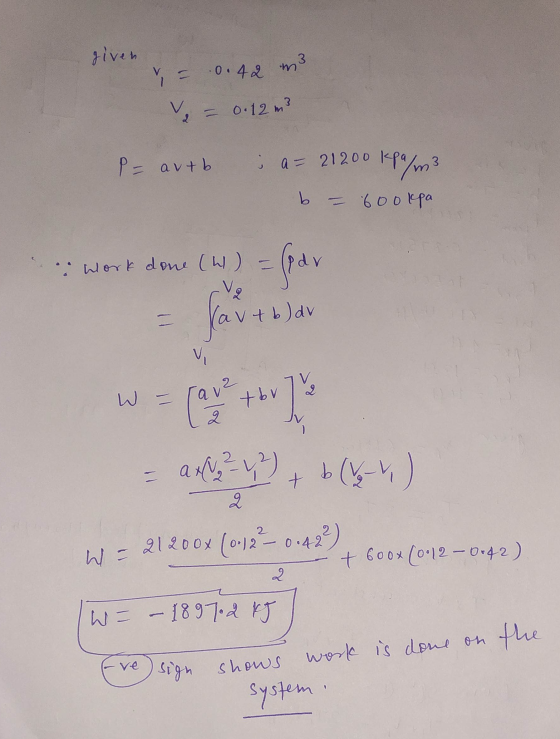 given
V₁ = 0.42 m³
V₂ = 0.12 m³
P = av+b ; a = 21200 kpa/m³
b = 600 kpa
∵ Work done (W) = ∫pdv
= ∫_{V₁}^{V₂} (av+b)dv
W = [av²/2 + bv]_{V₁}^{V₂}
= a×(V₂²-V₁²)/2 + b(V₂-V₁)
W = 21200×(0.12²-0.42²)/2 + 600×(0.12-0.42)
W = -1897.2 kJ
-ve sign shows work is done on the
system.